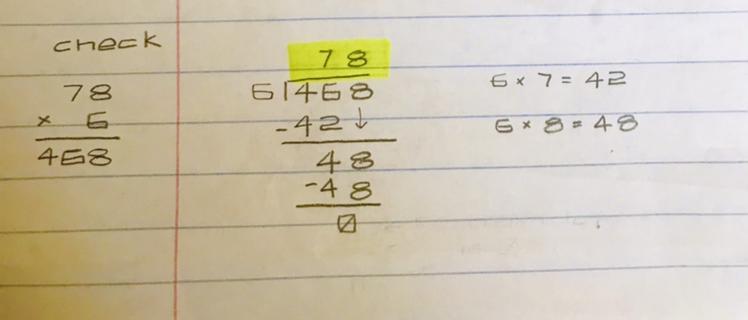 check
78
× 6
468
78
6 468
-42↓
48
-48
0
6 × 7 = 42
6 × 8 = 48